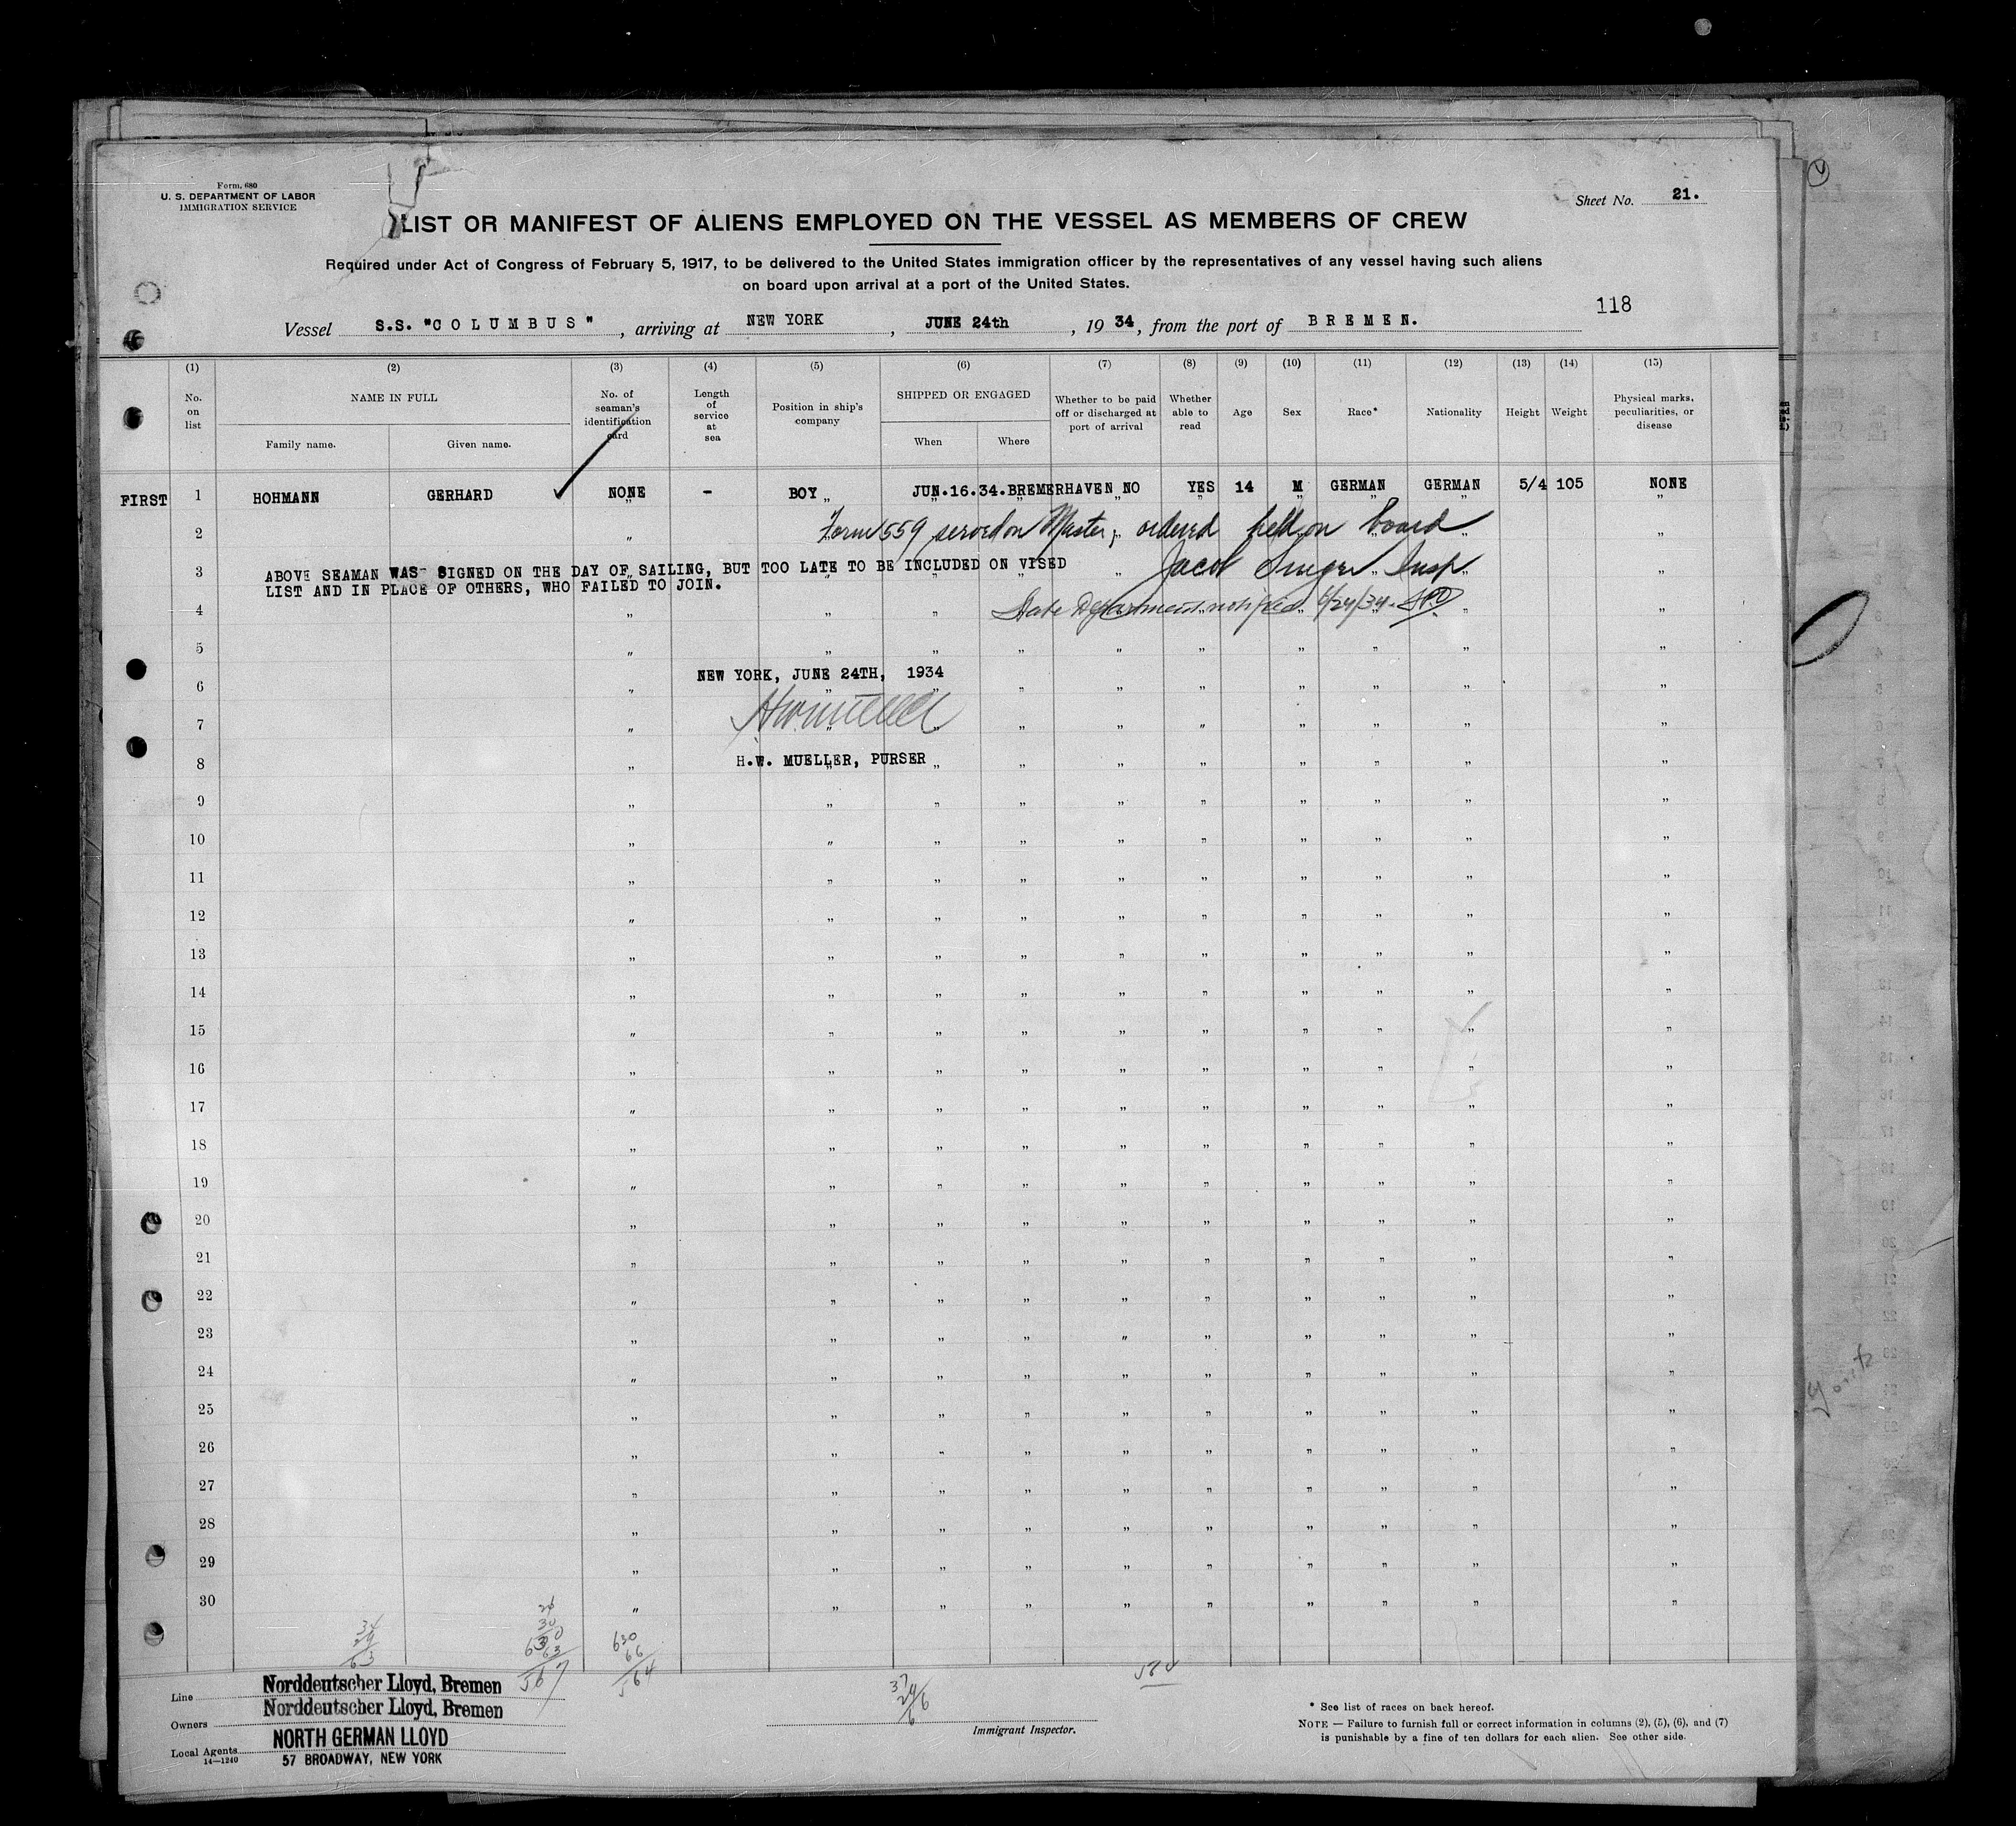 Form 680
U. S. DEPARTMENT OF LABOR
IMMIGRATION SERVICE
Sheet No. 21.
LIST OR MANIFEST OF ALIENS EMPLOYED ON THE VESSEL AS MEMBERS OF CREW
Required under Act of Congress of February 5, 1917, to be delivered to the United States immigration officer by the representatives of any vessel having such aliens
on board upon arrival at a port of the United States.
118
Vessel S.S. "COLUMBUS", arriving at NEW YORK, JUNE 24th, 1934, from the port of BREMEN.
(1) (2) (3) (4) (5) (6) (7) (8) (9) (10) (11) (12) (13) (14) (15)
No. on list
NAME IN FULL
Family name. Given name.
No. of seaman's identification card
Length of service at sea
Position in ship's company
SHIPPED OR ENGAGED
When Where
Whether to be paid off or discharged at port of arrival
Whether able to read
Age
Sex
Race*
Nationality
Height
Weight
Physical marks, peculiarities, or disease
FIRST 1 HOHMANN GERHARD NONE - BOY JUN.16.34. BREMERHAVEN NO YES 14 M GERMAN GERMAN 5/4 105 NONE
2 Form 559 served on Master; ordered held on board
3 ABOVE SEAMAN WAS SIGNED ON THE DAY OF SAILING, BUT TOO LATE TO BE INCLUDED ON VISED Jacob Singer Insp
LIST AND IN PLACE OF OTHERS, WHO FAILED TO JOIN.
4 State Department notified 6/24/34.
5
6 NEW YORK, JUNE 24TH, 1934
7
8 H.W. MUELLER, PURSER
9
10
11
12
13
14
15
16
17
18
19
20
21
22
23
24
25
26
27
28
29
30
34
29
63
630
63
567
630
66
564
37
29
66
Line Norddeutscher Lloyd, Bremen
Owners Norddeutscher Lloyd, Bremen
Local Agents NORTH GERMAN LLOYD
14—1240 57 BROADWAY, NEW YORK
Immigrant Inspector.
* See list of races on back hereof.
NOTE — Failure to furnish full or correct information in columns (2), (5), (6), and (7)
is punishable by a fine of ten dollars for each alien. See other side.